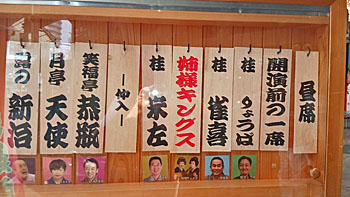 昼席
開演前の一席
桂 りょうば
桂 雀喜
姉様キングス
桂 米左
―仲入―
笑福亭 恭瓶
月亭 天使
露の 新治